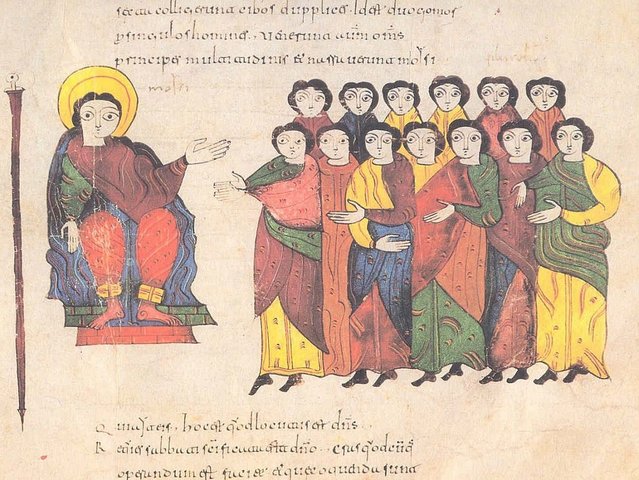 colligerunt cibos dupplices. Id est duo gomor
p singulos homines. Uenerunt aum oms
principes multitudinis et narrauerunt moysi
moisi
Qui ait eis. hoc est qod locutus est dns.
Requies sabbati scificata est dno. Cras qodcuq
operandum est facite et que coquenda sunt